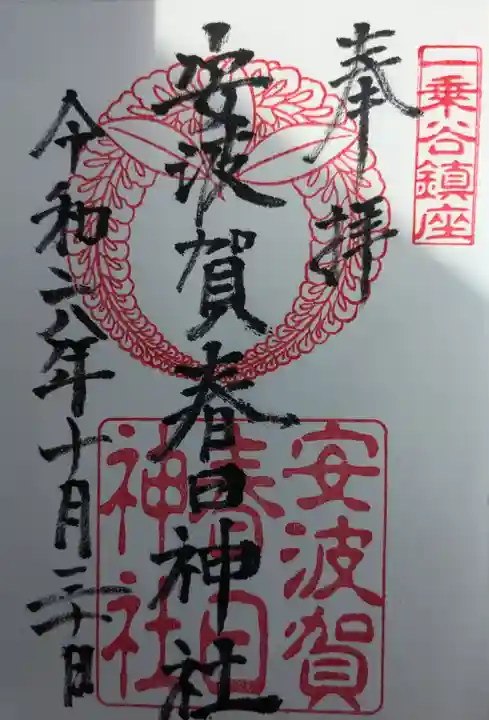 一乗谷鎮座
奉拝
安波賀春日神社
安波賀
春日
神社
令和六年十月二十日